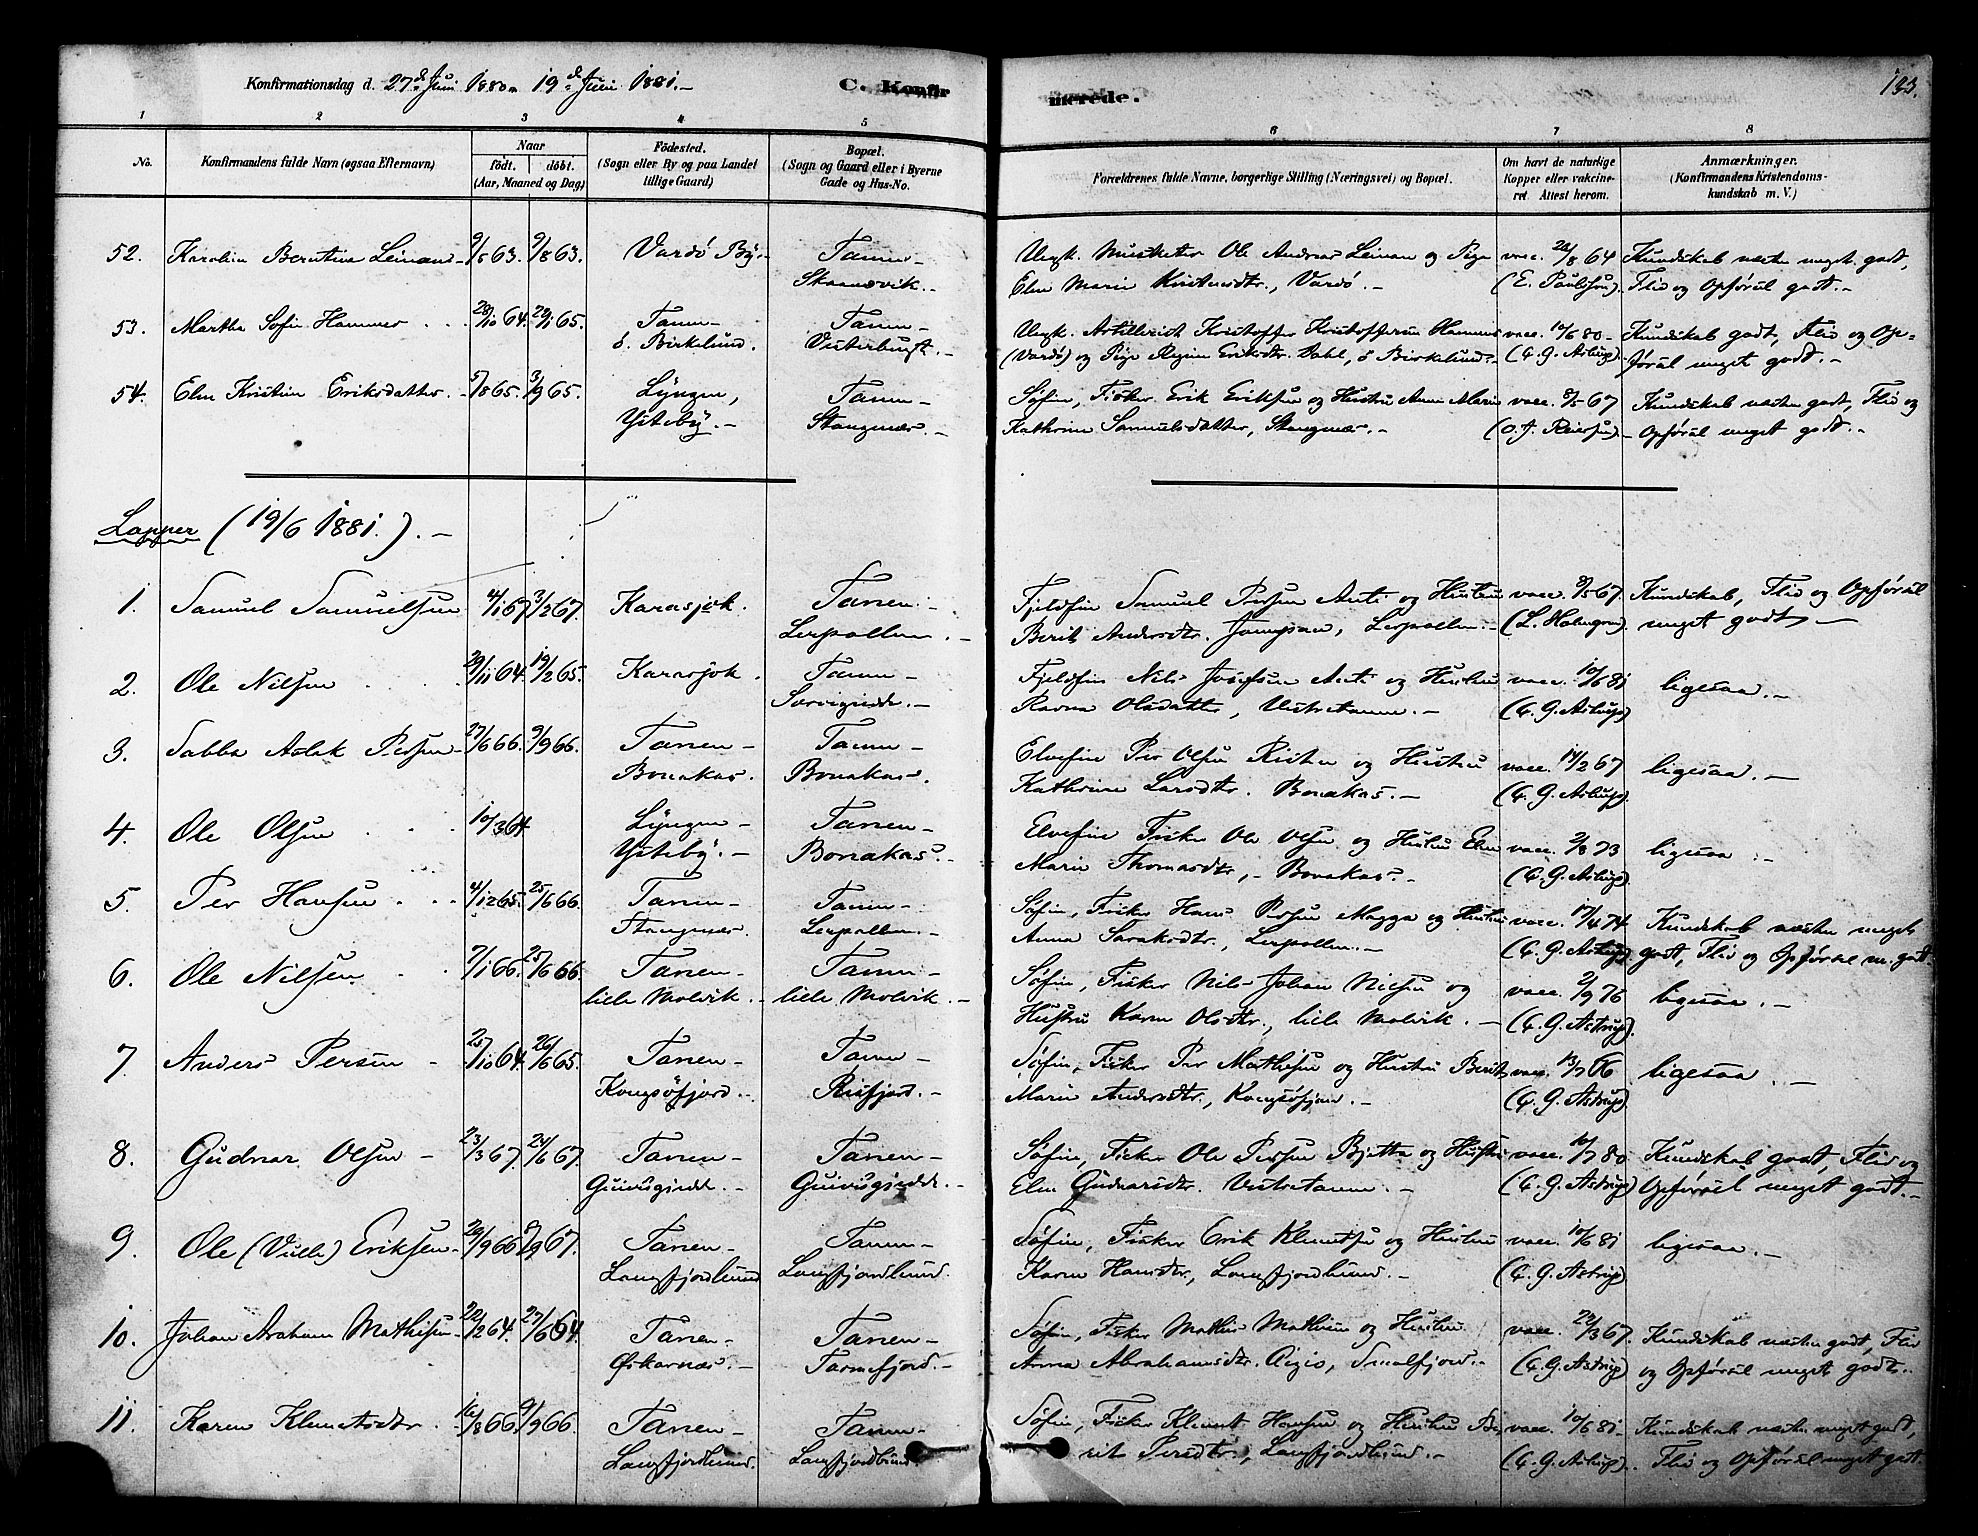 Konfirmationsdag d. 27de Juni 1880 19de Juni 1881.- C. Konfir merede. 133.
1 2 3 4 5 6 7 8
No. Konfirmandens fulde Navn (ogsaa Efternavn) Naar födt. döbt. (Aar, Maaned og Dag) Födested. (Sogn eller By og paa Landet tillige Gaard) Bopæl. (Sogn og Gaard eller i Byerne Gade og Hus-No. Forældrenes fulde Navne, borgerlige Stilling (Næringsvei) og Bopæl. Om havt de naturlige Kopper eller vakcineret. Attest herom. Anmærkninger. (Konfirmandens Kristendomskundskab m. V.)
52. Karolin Berntine 9/5 63. 9/8 63. Vardö By.- Tanen- Uegt. Musketer Ole Andreas Leman og Pige vacc. /8 64 Kundskab næsten meget godt,
Elen Marie Vardö.- (E. Paulssen) Flid og Opförsel godt.-
53. Martha Sofie Hammer 28/10 64. 29/1 65. Tanen- Tanen- Uegt. Artillerist Kristoffer Kristoffersen Hammer vacc. 10/6 80- Kundskab godt, Flid og Op-
Birkelund. (Vardö) og Pige Regine Eriksdtr. Dahl, Birkelund.- (C. G. Astrup) försel meget godt.-
54. Elen Kristine Eriksdatter.- 5/8 65. 3/9 65. Lyngen, Tanen- Söfin, Fisker Erik Eriksen og Hustru Anne Marie vacc. 8/5 67 Kundskab næsten godt, Flid og
Ysteby.- Stangnæs.- Kathrine Samuelsdatter, Stangnæs.- (O. J. Reiersen).- Opförsel meget godt.-
Lapper (19/6 1881.).-
1. Samuel Samuelsen 4/1 67 3/2 67. Karasjok. Tanen- Fjeldfin Samuel Persen Anti og Hustru vacc. 8/5 67. Kundskab, Flid og Opförsel
Lerpollen.- Berit Andersdtr. Lerpollen.- (L. Holmgren). meget godt-
2. Ole Nilsen 29/11 64. 19/2 65. Karasjok. Tanen- Fjeldfin Nils Josefsen Anti og Hustru vacc. 10/6 81 ligesaa.-
Ravna Olsdatter, Vestretanen.- (C. G. Astrup)
3. Sabba Aslak Persen- 27/6 66. 9/9 66. Tanen- Tanen- Elvefin Per Olsen Risten og Hustru vacc. 14/2 67 ligesaa.-
Bonakas. Bonakas. Kathrine Larsdtr. Bonakas.- (C. G. Astrup).
4. Ole Olsen 10/3 64. Lyngen- Tanen- Elvefin Fisker Ole Olsen og Hustru Elen vacc. 2/8 73 ligesaa.-
Ysteby.- Bonakas.- Marie Thomasdtr,- Bonakas.- (C. G. Astrup).
5. Per Hansen 4/12 65. 25/6 66. Tanen- Tanen- Söfin, Fisker Hans Persen Magga og Hustru vacc. 17/4 74 Kundskab næsten meget
Stangnæs. Lerpollen.- Anna Lerpollen.- (C. G. Astrup) godt, Flid og Opförsel m. godt.
6. Ole Nilsen 7/1 66. 25/6 66. Tanen- Tanen- Söfin, Fisker Nils Johan Nilsen og vacc. 2/9 76 ligesaa.-
lille Molvik.- lille Molvik.- Hustru Karen Olsdtr., lille Molvik.- (C. G. Astrup).
7. Anders Persen- 25/10 64. 26/6 65. Tanen- Tanen- Söfin, Fisker Per Mathisen og Hustru Berit vacc. 13/7 66 ligesaa.-
Kongsöfjord.- Risfjord.- Marie Andersdtr., Kongsöfjord.- (C. G. Astrup).
8. Gudnar Olsen- 23/3 67. 24/6 67. Tanen- Tanen- Söfin, Fisker Ole Persen Bjetta og Hustru vacc. 10/7 80 Kundskab godt, Flid og
Guivsgiedde.- Guivsgiedde.- Elen Gudnarsdtr. Vestretanen.- (C. G. Astrup) Opförsel meget godt.-
9. Ole (Vulle) Eriksen- 29/9 66 8/9 67. Tanen- Tanen- Söfin, Fisker Erik Klemetsen og Hustru vacc. 10/6 81 ligesaa.-
Langfjordbund Langfjordbund. Karen Hansdtr, Langfjordbund.- (C. G. Astrup)
10. Johan Abraham Mathisen- 22/2 64. 27/6 64. Tanen- Tanen- Söfin, Fisker Mathis Mathisen og Hustru vacc. 22/3 67. Kundskab næsten godt, Flid
Oskarnæs.- Tarmefjord.- Anna Abrahamsdtr. Smalfjord.- (C. G. Astrup) og Opförsel meget godt.-
11. Karen Klemetsdtr. 16/8 66. 9/9 66. Tanen- Tanen- Söfin, Fisker Klemet Hansen og Hustru Be- vacc. 10/6 81- Kundskab næsten meget godt,
Langfjordbund. Langfjordbund rit Persdtr., Langfjordbund.- (C. G. Astrup). Flid og Opförsel meget godt.